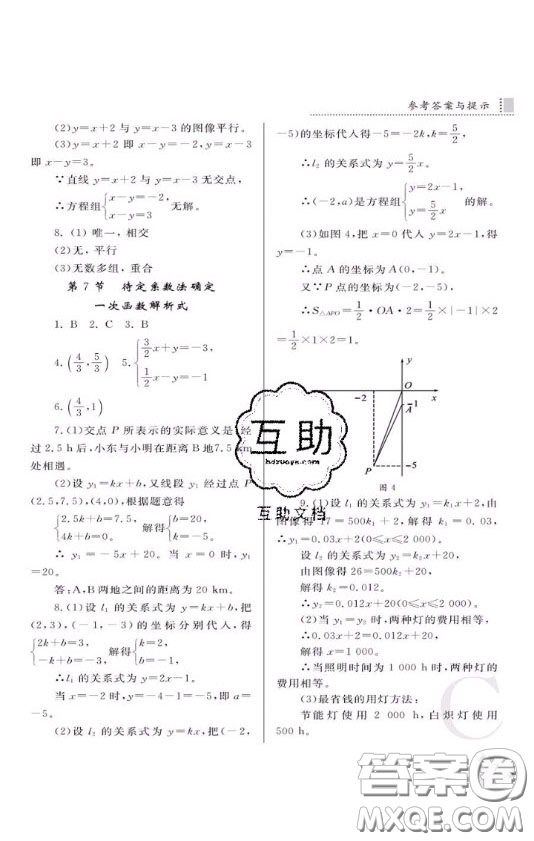 参考答案与提示
(2)y=x+2 与 y=x-3 的图像平行。
(3)y=x+2 即 x-y=-2,y=x-3
即 x-y=3。
∵直线 y=x+2 与 y=x-3 无交点,
∴方程组{x-y=-2, x-y=3 无解。
8. (1) 唯一,相交
(2)无,平行
(3)无数多组,重合
第 7 节 待定系数法确定
一次函数解析式
1. B 2. C 3. B
4. (4/3, 5/3) 5. {3/2x+y=-3, 1/2x-y=-1
6. (4/3,1)
7. (1)交点 P 所表示的实际意义是:经
过 2.5 h 后,小东与小明在距离 B 地 7.5 km
处相遇。
(2)设 y=kx+b,又线段 y₁ 经过点 P
(2.5,7.5),(4,0),根据题意得
{2.5k+b=7.5, 4k+b=0, 解得{b=20, k=-5。
∴ y₁=-5x+20。当 x=0 时,y₁
=20。
答:A,B 两地之间的距离为 20 km。
8. (1)设 l₁ 的关系式为 y=kx+b,把
(2,3),(-1,-3)的坐标分别代人,得
{2k+b=3, -k+b=-3, 解得{k=2, b=-1。
∴l₁ 的关系式为 y=2x-1。
当 x=-2 时,y=-4-1=-5,即 a=
-5。
(2)设 l₂ 的关系式为 y=kx,把(-2,
-5)的坐标代人得-5=-2k,k=5/2,
∴l₂ 的关系式为 y=5/2x。
∴(-2,a)是方程组{y=2x-1, y=5/2x 的解。
(3)如图 4,把 x=0 代人 y=2x-1,得
y=-1。
∴点 A 的坐标为 A(0,-1)。
又∵P 点的坐标为(-2,-5),
∴S△APO=1/2·OA·2=1/2×|-1|×2
=1/2×1×2=1。
y
-2
O
x
-1
A
P
-5
图 4
9. (1)设 l₁ 的关系式为 y₁=k₁x+2,由
图像得 17=500k₁+2,解得 k₁=0.03,
∴y₁=0.03x+2(0≤x≤2 000)。
设 l₂ 的关系式为 y₂=k₂x+20,
由图像得 26=500k₂+20,
解得 k₂=0.012。
∴y₂=0.012x+20(0≤x≤2 000)。
(2)当 y₁=y₂ 时,两种灯的费用相等,
∴0.03x+2=0.012x+20,
解得 x=1 000。
∴当照明时间为 1 000 h 时,两种灯的
费用相等。
(3)最省钱的用灯方法:
节能灯使用 2 000 h,白炽灯使用
500 h。
互助
hdzuoye.com
互助文档
C
答案圈
MXQE.COM